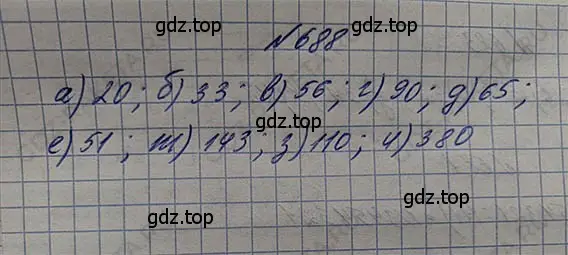 gdz.top
№688
а) 20; б) 33; в) 56; г) 90; д) 65;
gdz.top
е) 51; ж) 143; з) 110; и) 380
gdz.top
gdz.top